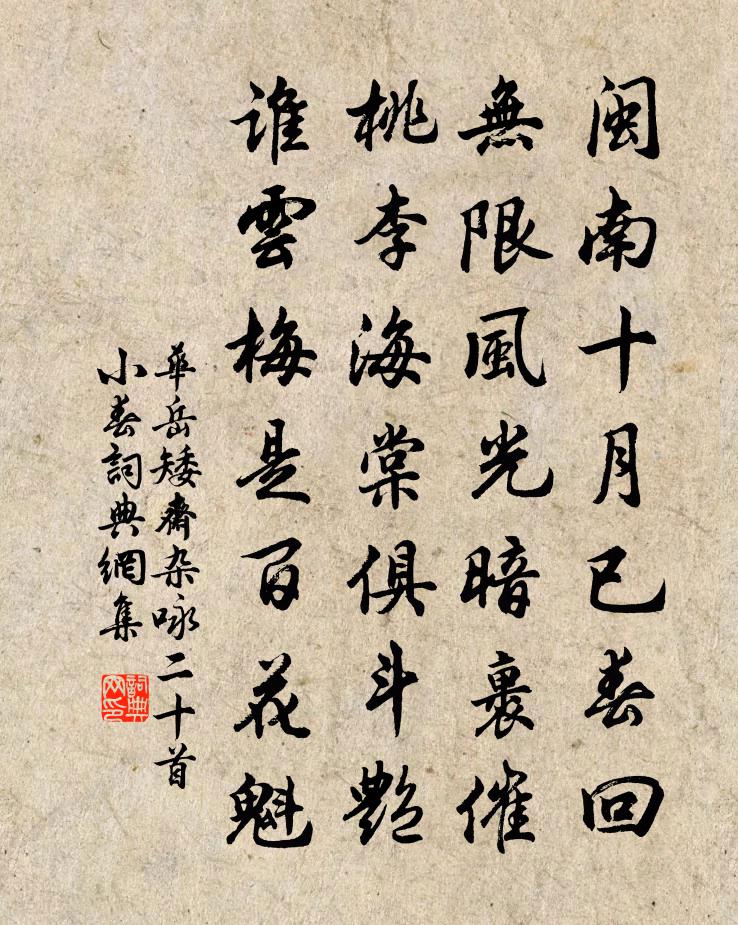 闽南十月已春回
無限風光暗裏催
桃李海棠俱斗艷
谁雲梅是百花魁
華岳矮齋杂咏二十首
小春詞典網集
詞典網印